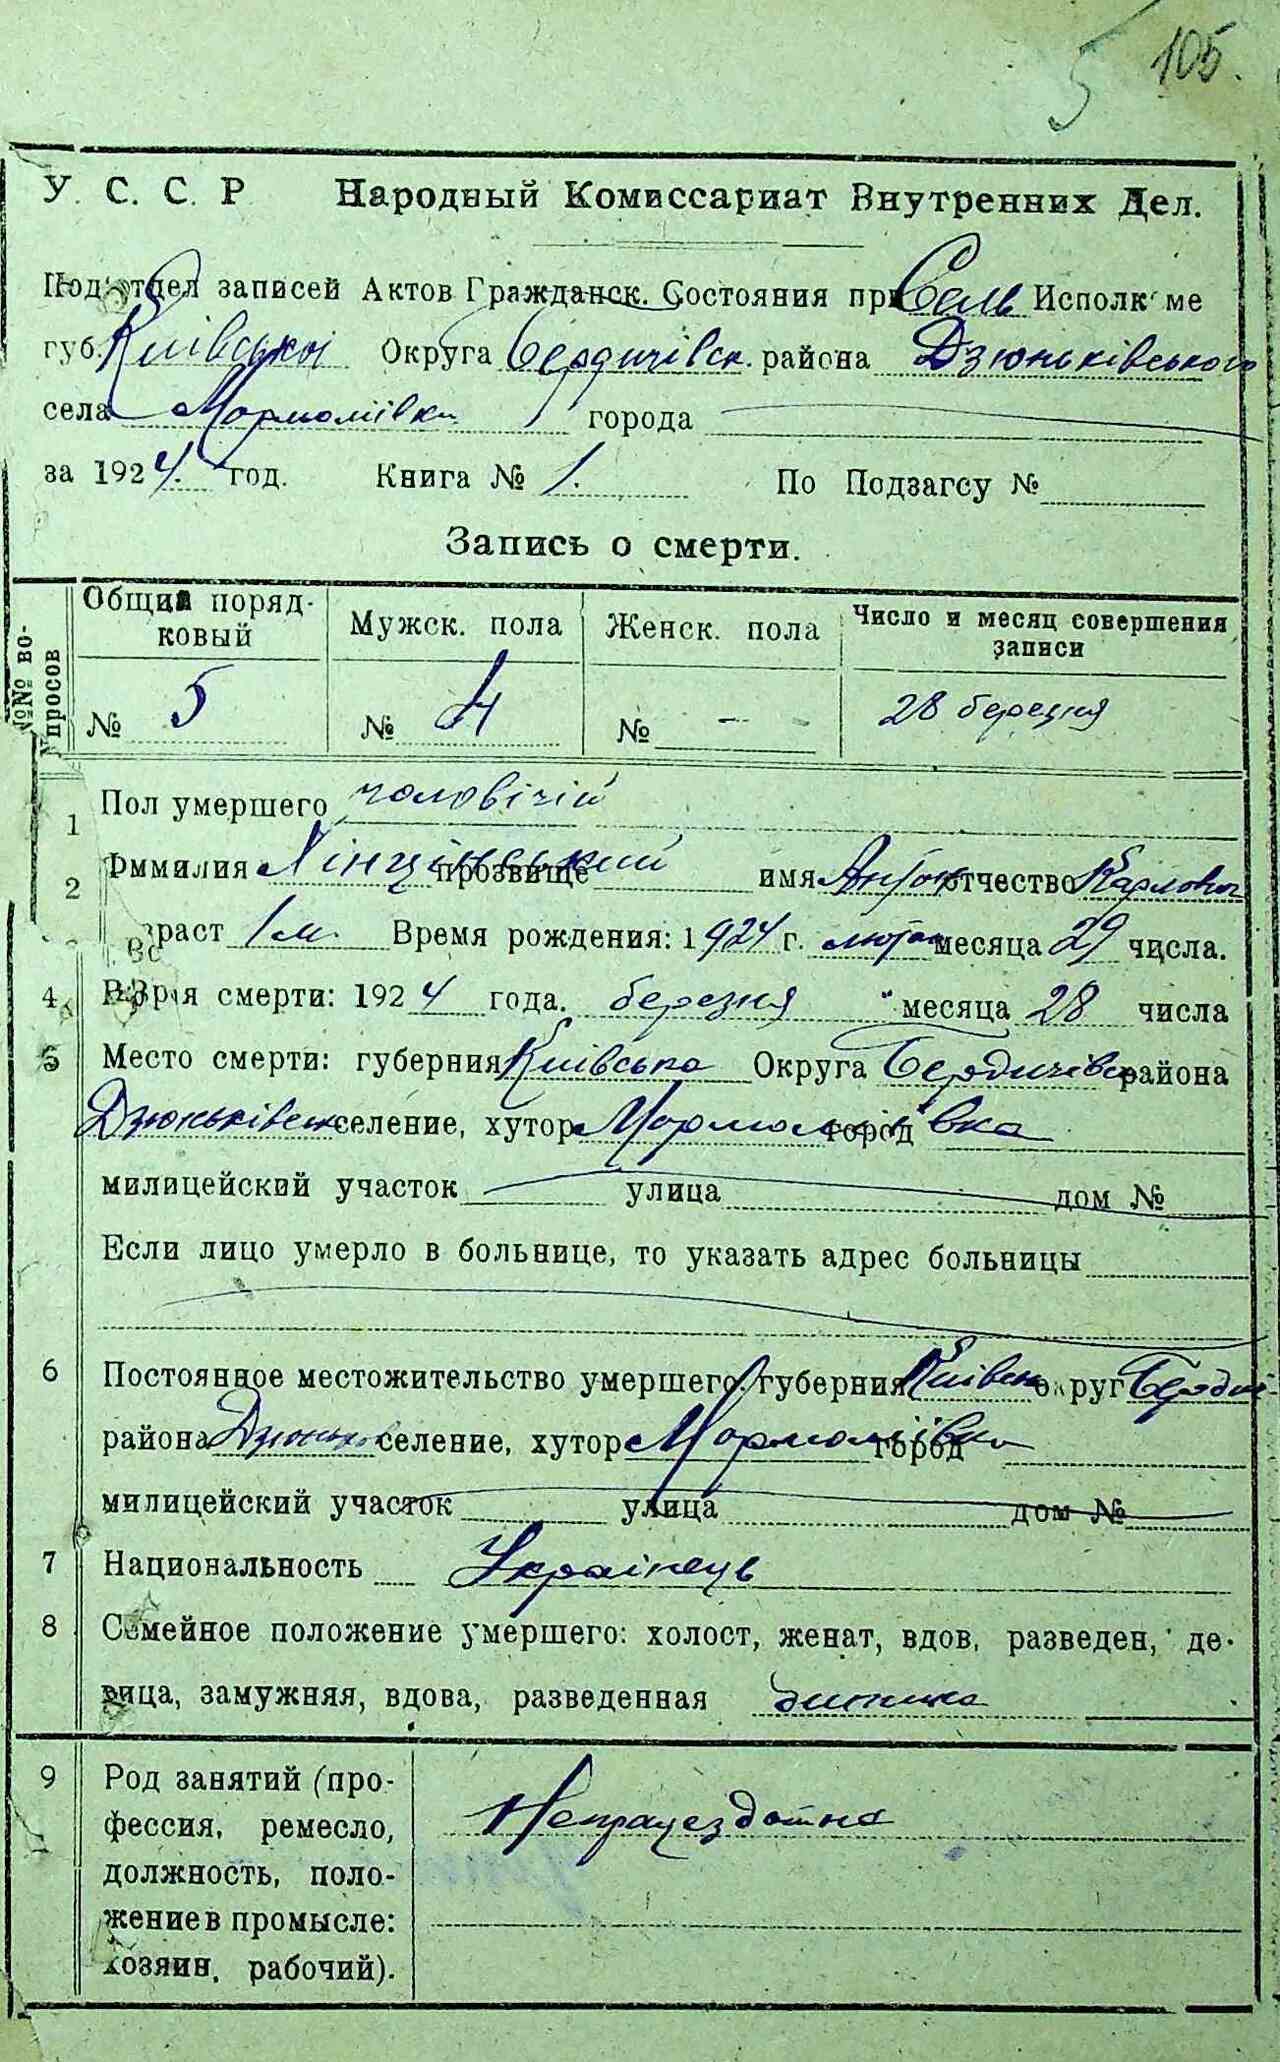 5 105.
У. С. С. Р Народный Комиссариат Внутренних Дел.
Под'отдел записей Актов Гражданск. Состояния при Сель Исполк ме
губ. Київської Округа Бердичівск. района Дзюньківського
села Мормоліївка города
за 1924. год. Книга № 1. По Подзагсу №
Запись о смерти.
№№ во-просов
Общий поряд- Мужск. пола Женск. пола Число и месяц совершения
ковый записи
№ 5 № 4 № — 28 березня
1 Пол умершего чоловічій
2 Фммилия Хінцінський прозвище имя Антон отчество Карлович
зраст 1 м. Время рождения: 1924 г. лютого месяца 29 числа.
4 Вр я смерти: 1924 года. березня месяца 28 числа
5 Место смерти: губерния Київська Округа Бердичівск района
Дзюньківськ селение, хутор Мормоліївка город
милицейский участок улица дом №
Если лицо умерло в больнице, то указать адрес больницы
6 Постоянное местожительство умершего: губерния Київськ округ Бердич
района Дзюньков селение, хутор Мормоліївка город
милицейский участок улица дом №
7 Национальность Українець
8 Семейное положение умершего: холост, женат, вдов, разведен, де-
вица, замужняя, вдова, разведенная дитина
9 Род занятий (про-
фессия, ремесло, Непрацездатна
должность, поло-
жение в промысле:
хозяин, рабочий).